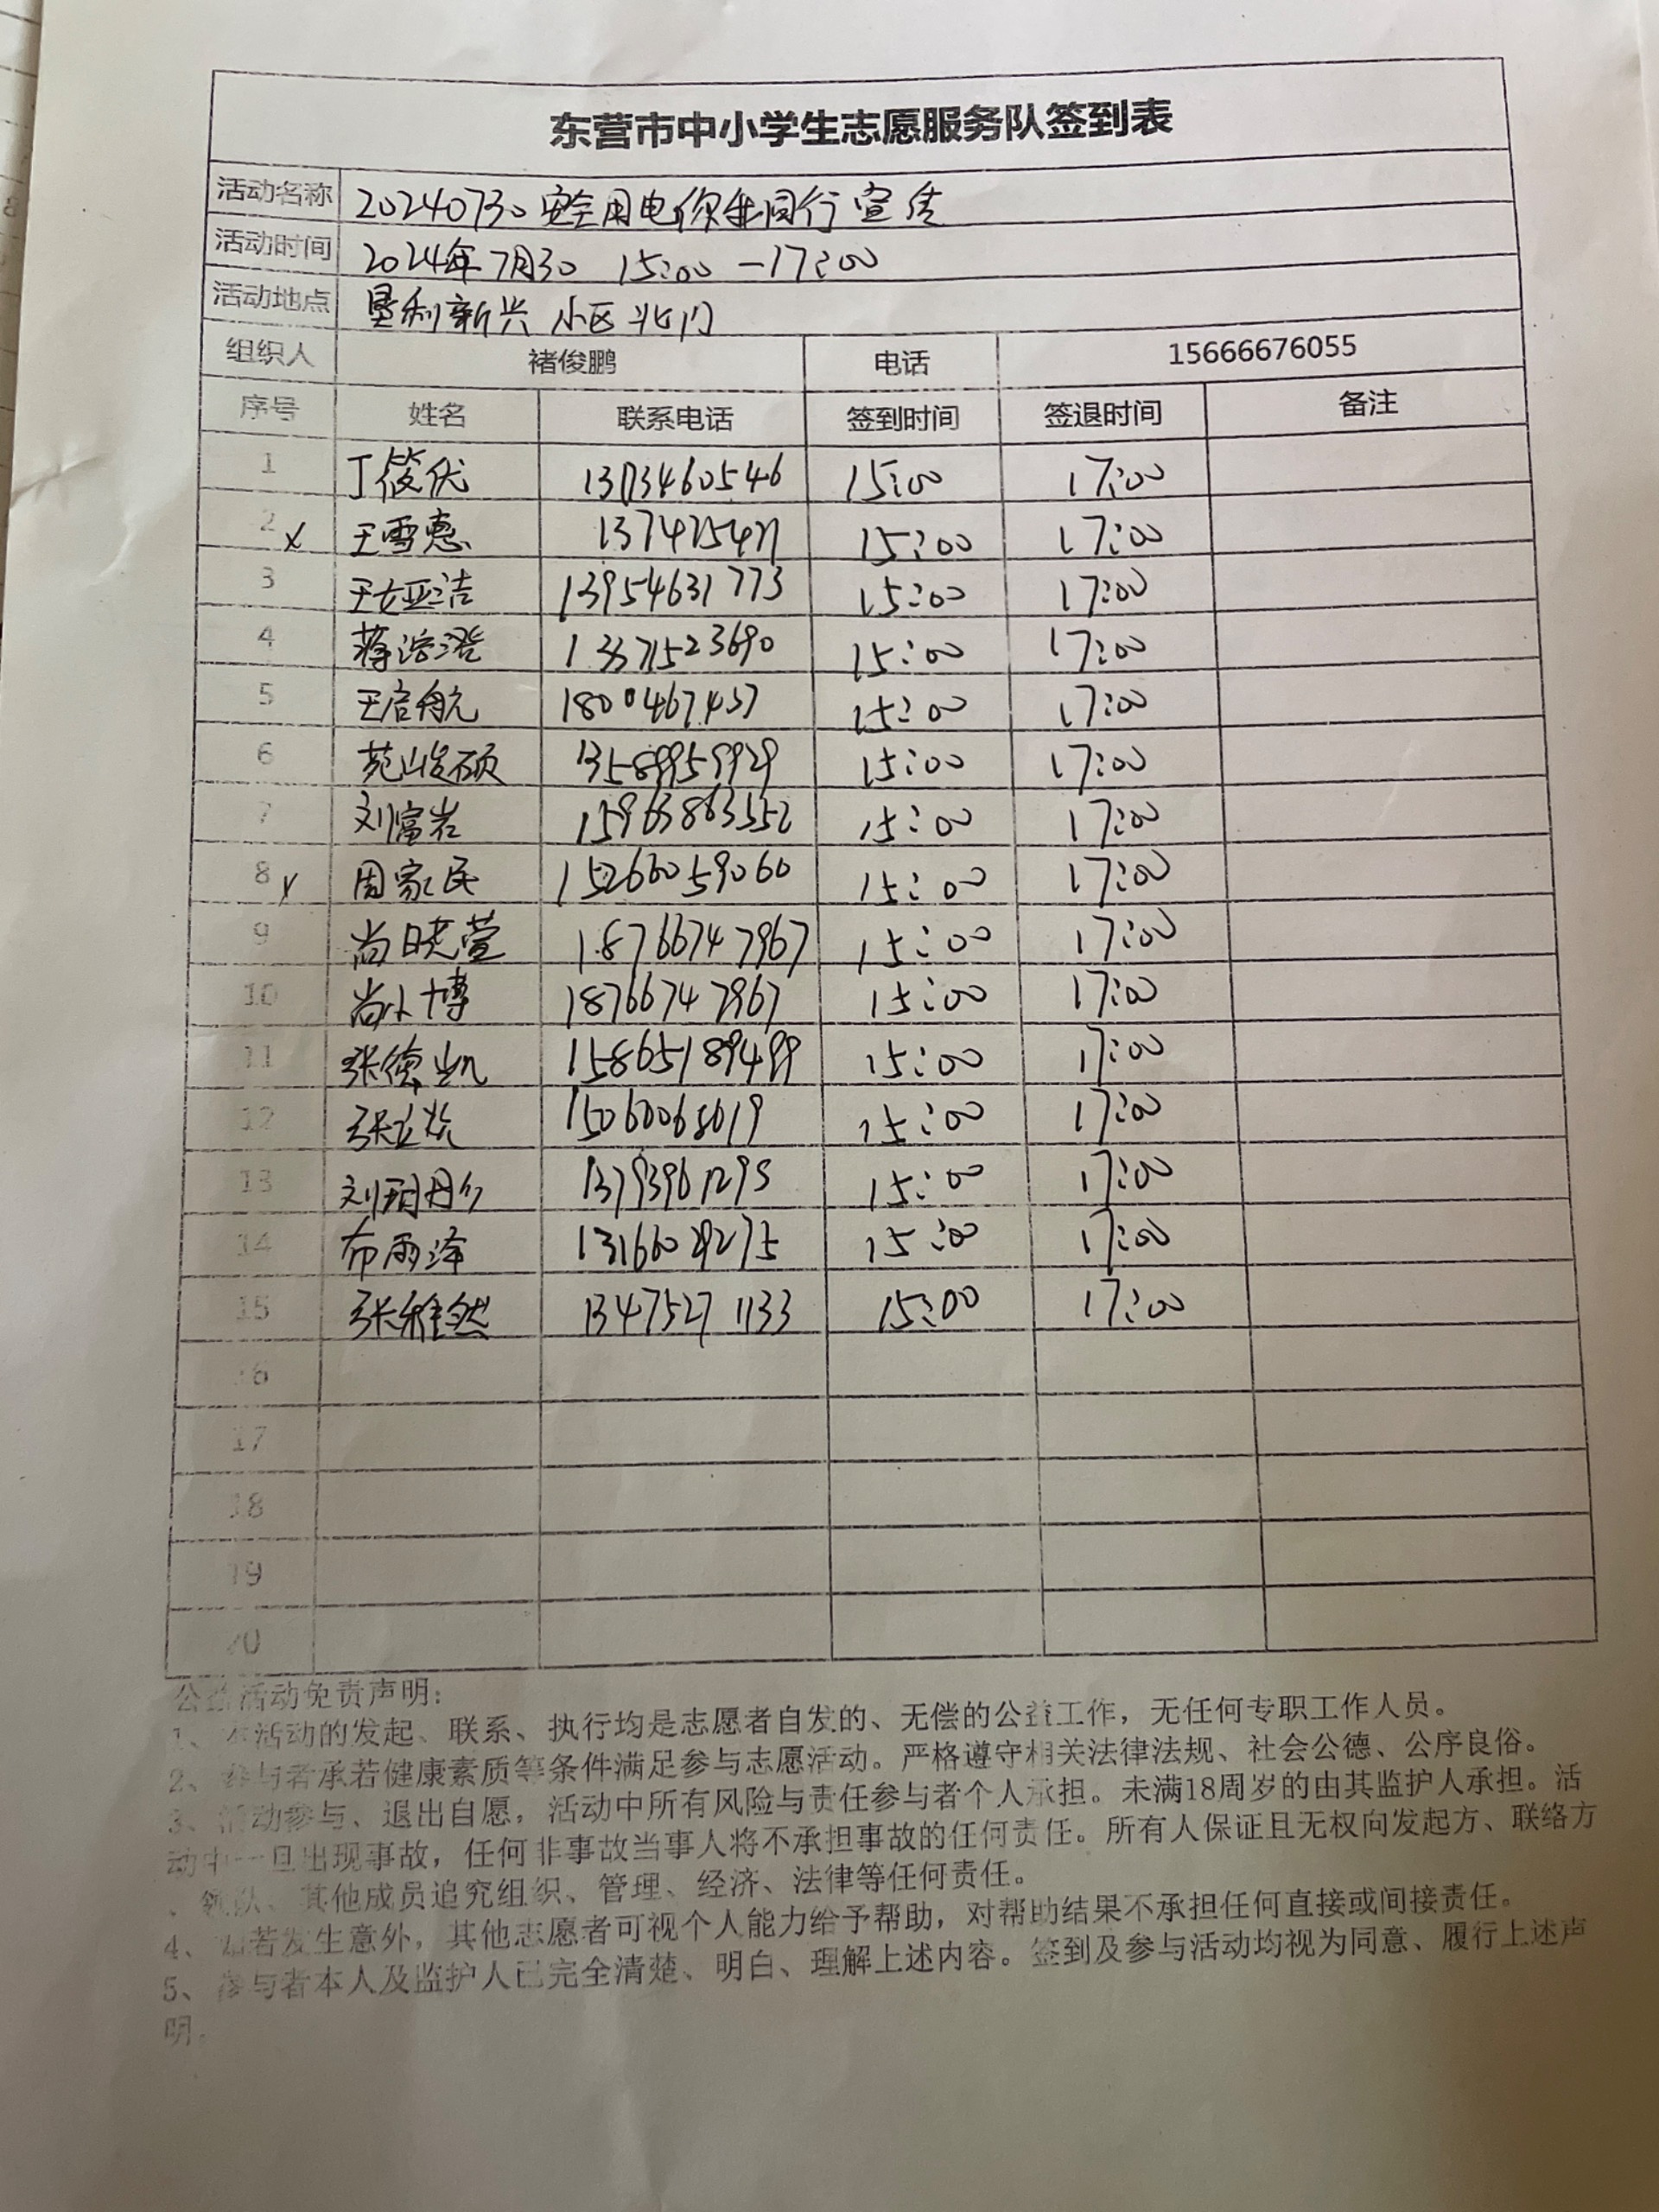 东营市中小学生志愿服务队签到表
活动名称 20240730安全用电你我同行宣传
活动时间 2024年7月30 15:00-17:00
活动地点 垦利新兴小区北门
组织人 褚俊鹏 电话 15666676055
序号 姓名 联系电话 签到时间 签退时间 备注
1 丁筱优 15:00 17:00
2 x 王雪惠 15:00 17:00
3 13954631773 15:00 17:00
4 13371523690 15:00 17:00
5 王启航 15:00 17:00
6 苑峻硕 13589959929 15:00 17:00
7 刘富岩 15963863552 15:00 17:00
8 x 周家民 15266059060 15:00 17:00
9 尚晓萱 18766747967 15:00 17:00
10 尚小博 18766747967 15:00 17:00
11 张德凯 15865189499 15:00 17:00
12 15:00 17:00
13 15:00 17:00
14 布雨泽 15:00 17:00
15 张雅然 13475271133 15:00 17:00
16
17
18
19
20
公益活动免责声明：
1、本活动的发起、联系、执行均是志愿者自发的、无偿的公益工作，无任何专职工作人员。
2、参与者承若健康素质等条件满足参与志愿活动。严格遵守相关法律法规、社会公德、公序良俗。
3、活动参与、退出自愿，活动中所有风险与责任参与者个人承担。未满18周岁的由其监护人承担。活
动中一旦出现事故，任何非事故当事人将不承担事故的任何责任。所有人保证且无权向发起方、联络方
、领队、其他成员追究组织、管理、经济、法律等任何责任。
4、如若发生意外，其他志愿者可视个人能力给予帮助，对帮助结果不承担任何直接或间接责任。
5、参与者本人及监护人已完全清楚、明白、理解上述内容。签到及参与活动均视为同意、履行上述声
明。